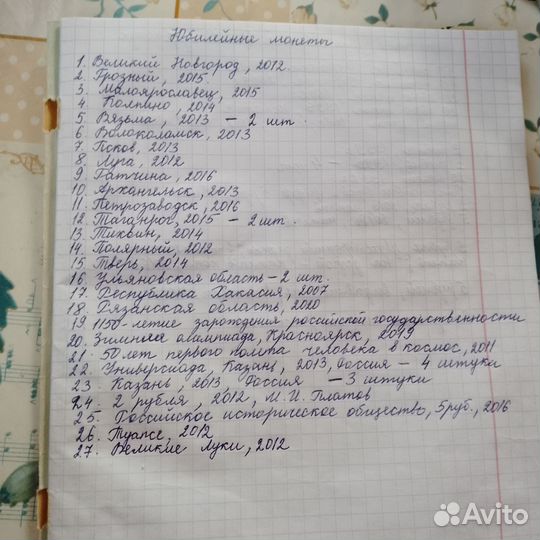 Юбилейные монеты
1. Великий Новгород, 2012.
2. Грозный, 2015
3. Малоярославец, 2015
4. Колпино, 2014
5. Вязьма, 2013 – 2 шт.
6. Волоколамск, 2013
7. Псков, 2013
8. Луга, 2012
9. Гатчина, 2016
10. Архангельск, 2013
11. Петрозаводск, 2016
12. Таганрог, 2015 – 2 шт.
13. Тихвин, 2014
14. Полярный, 2012
15. Тверь, 2014
16. Ульяновская область – 2 шт.
17. Республика Хакасия, 2007
18. Рязанская область, 2020
19. 1150-летие зарождения российской государственности
20. Зимняя олимпиада, Красноярск, 2019
21. 50 лет первого полёта человека в космос, 2011
22. Универсиада, Казань, 2013, Россия – 4 штуки
23. Казань, 2013, Россия – 3 штуки
24. 2 рубля, 2012, М.И. Платов
25. Российское историческое общество, 5 руб., 2016
26. Туапсе, 2012
27. Великие Луки, 2012
Avito